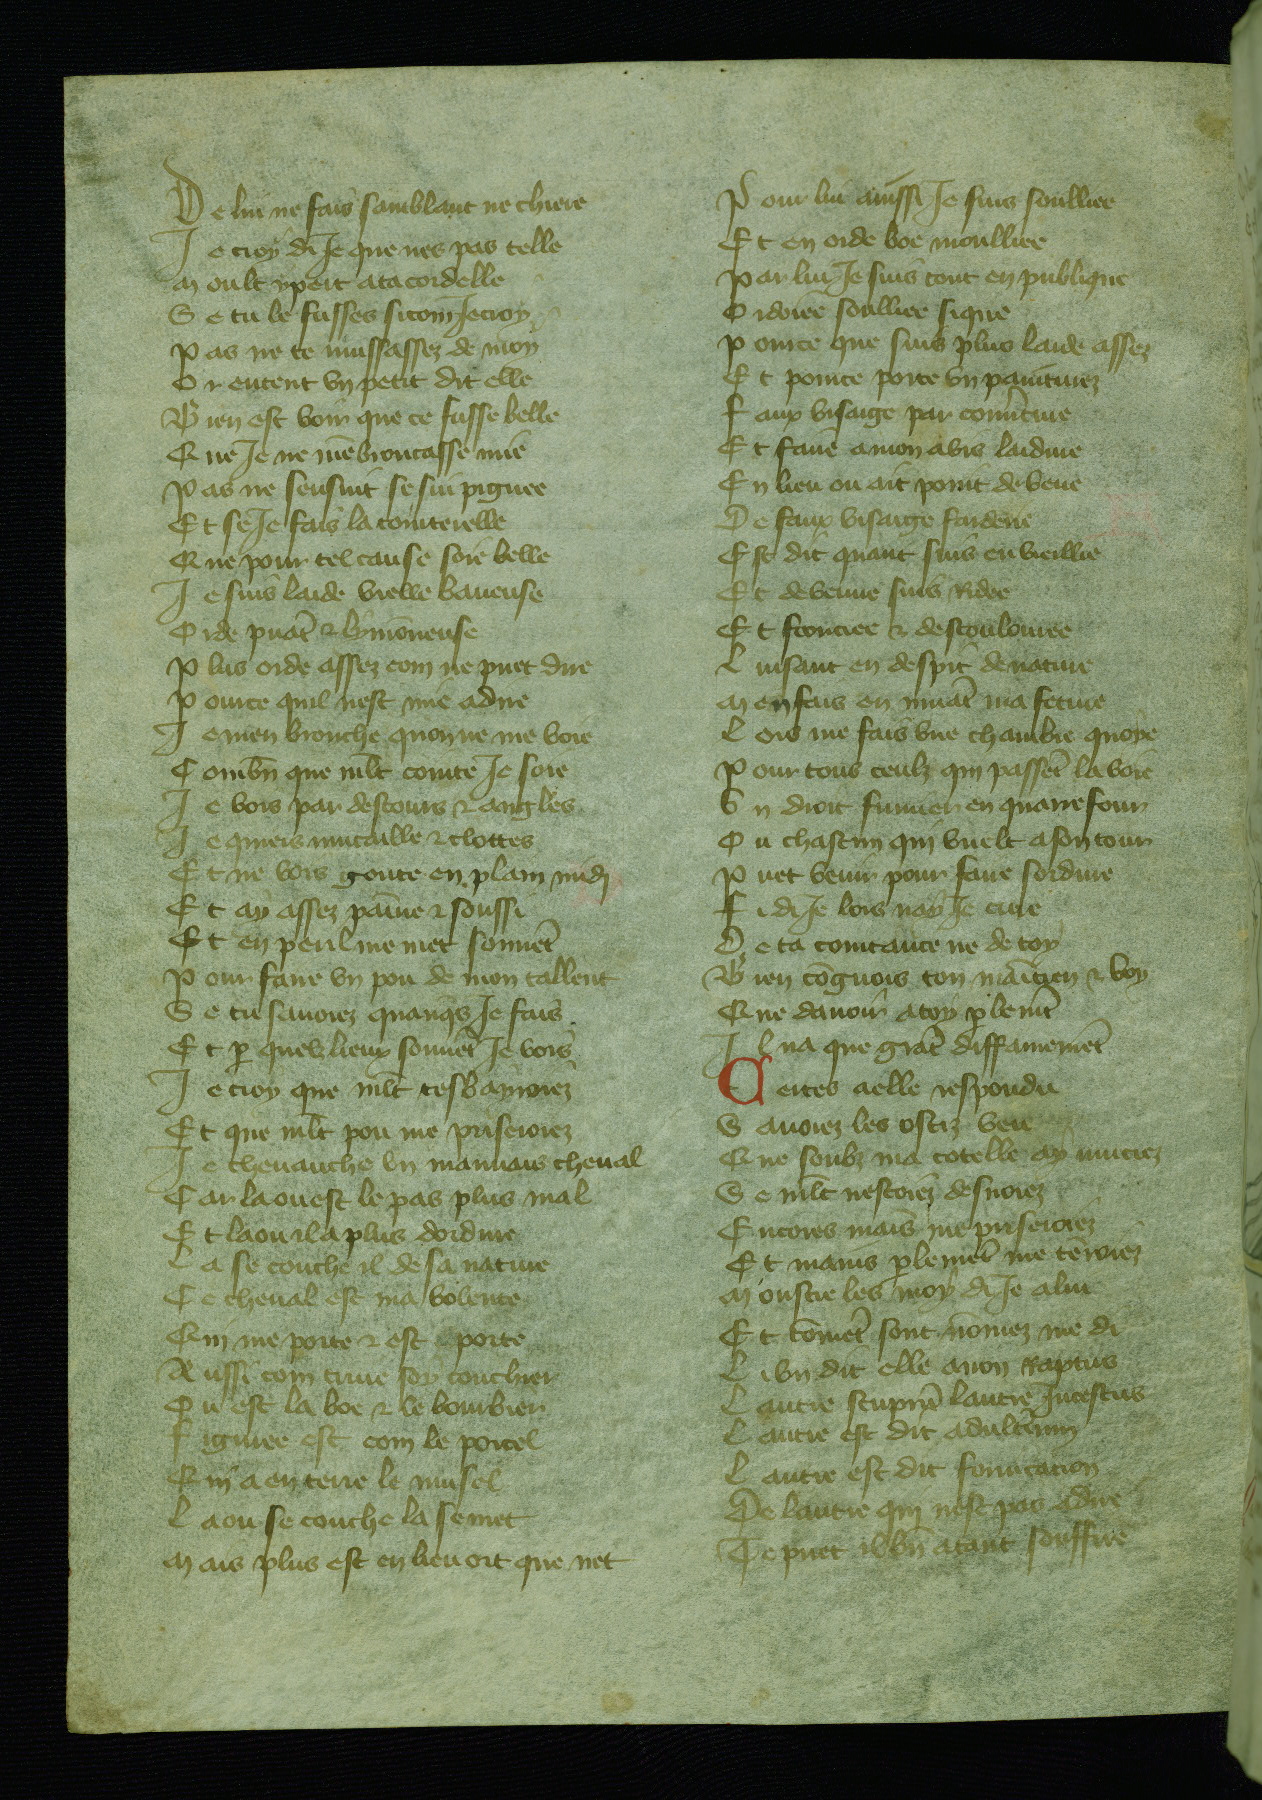 De lui ne fais samblant ne chiere
Je croy di Je que nes pas telle
Moult ypert atacordelle
Se tu le fusses sicom Jecroy
Pas ne te mussassez de moy
Or entent vn petit dit elle
Bien est voir que ce fusse belle
Que Je ne mēbroncasse mie
Pas ne sensuit se sui pignee
Et se Je fais la cointerelle
Que pour tel cause soie belle
Je suis laide vielle baueuse
Orde puāt & lymōneuse
Plus orde assez com ne puet dire
Pource quil nest mie adire
Je men bronche quon ne me voie
Combn̄ que mlt̄ cointe Je soie
Je vois par destours & anglēs
Je quiers mucaille & clottes
Et ne vois goute en plain midj
Et ay assez paīne & soussi
Et en peril me met souuēt
Pour faire vn pou de mon tallent
Se tu sauoiez quanq̄s Je fais
Et p̱ quelz lieux souuēt Je vois
Je croy que mlt̄ tesbayroiez
Et que mlt̄ pou me priseroiez
Je cheuauche vn mauuais cheual
Car la ou est le pas plus mal
Et la ou il a plus dordure
La se couche il de sa nature
Ce cheual est ma volente
Qui me porte & est porte
Aussi com truie soy couchier
Ou est la boe & le bourbier
Figuree est com le porcel
Qui a en terre le musel
La ou se couche la se met
Mais plus est en lieu ort que net
Pour lui aussi Je suis soulliee
Et en orde boe moulliee
Par lui Je suis tout en publique
Ordoiee soulliee sique
Pource que suis plus laide assez
Et pource porte vn paintu̅rez
Faux visaige par couu̅ture
Et faire a mon avis laidure
En lieu ou ait point de veue
De faux visaige fardeūe
Est dit quant suis enveillie
Et devenue suis Ridee
Et froncee & descoulouree
Luisant en despit de nature
Men fais en muāt ma fēture
Lors me fais vne chambre quoye
Pour tous ceulx qui passēt la voie
Vn droit fumier en quarrefour
Ou chascun qui vuelt a son tour
Puet venir pour faire sordure
Fi di Je lors nay Je cure
De ta cointance ne de toy
Bien cōgnois ton maītien & voy
Que dauoir a toy p̱lemt̄
Il na que grāt diffamemēt
Certes aelle respondu
Savoiez les ostiz veu
Que soubz ma cotelle ay muciez
Se mlt̄ nestoiez desuoiez
Encores mais me priseroiez
Et mains p̱lemēt me tēroiez
Monstre les moy di Je a lui
Et cōmēt sont nōmez me di
Li vn dit elle a non Raptus
Lautre stuprū lautre Jncestus
Lautre est dit adulterium
Lautre est dit fornicacion
De lautre qui nest pas adire
Te puet il bn̄ atant souffire